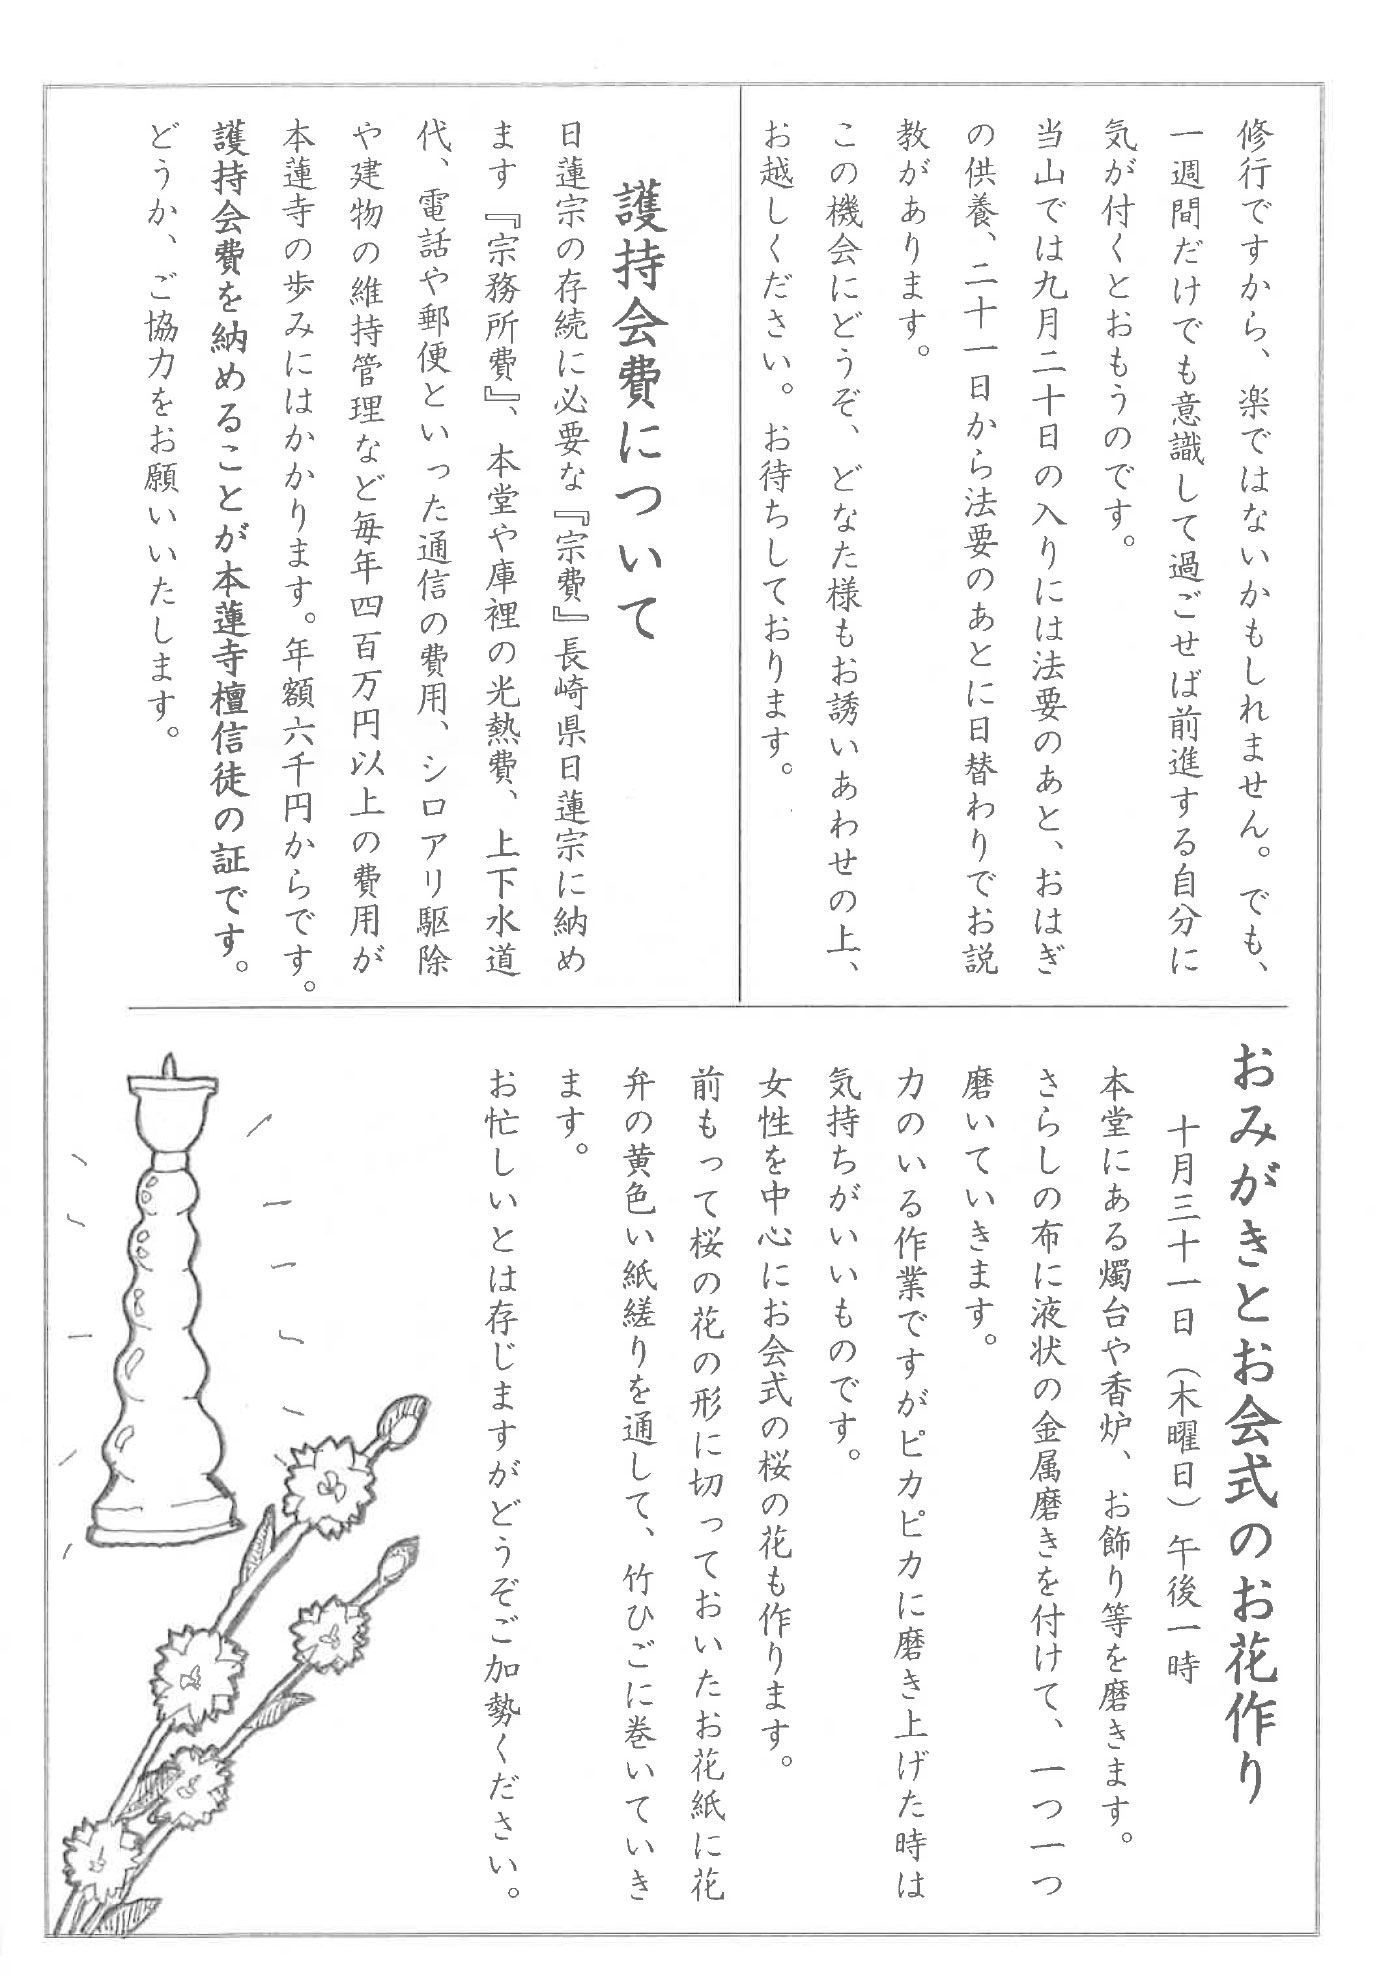 修行ですから、楽ではないかもしれません。でも、
一週間だけでも意識して過ごせば前進する自分に
気が付くとおもうのです。
当山では九月二十日の入りには法要のあと、おはぎ
の供養、二十一日から法要のあとに日替わりでお説
教があります。
この機会にどうぞ、どなた様もお誘いあわせの上、
お越しください。お待ちしております。
護持会費について
日蓮宗の存続に必要な『宗費』長崎県日蓮宗に納め
ます『宗務所費』、本堂や庫裡の光熱費、上下水道
代、電話や郵便といった通信の費用、シロアリ駆除
や建物の維持管理など毎年四百万円以上の費用が
本蓮寺の歩みにはかかります。年額六千円からです。
護持会費を納めることが本蓮寺檀信徒の証です。
どうか、ご協力をお願いいたします。
おみがきとお会式のお花作り
十月三十一日（木曜日）午後一時
本堂にある燭台や香炉、お飾り等を磨きます。
さらしの布に液状の金属磨きを付けて、一つ一つ
磨いていきます。
力のいる作業ですがピカピカに磨き上げた時は
気持ちがいいものです。
女性を中心にお会式の桜の花も作ります。
前もって桜の花の形に切っておいたお花紙に花
弁の黄色い紙縒りを通して、竹ひごに巻いていき
ます。
お忙しいとは存じますがどうぞご加勢ください。